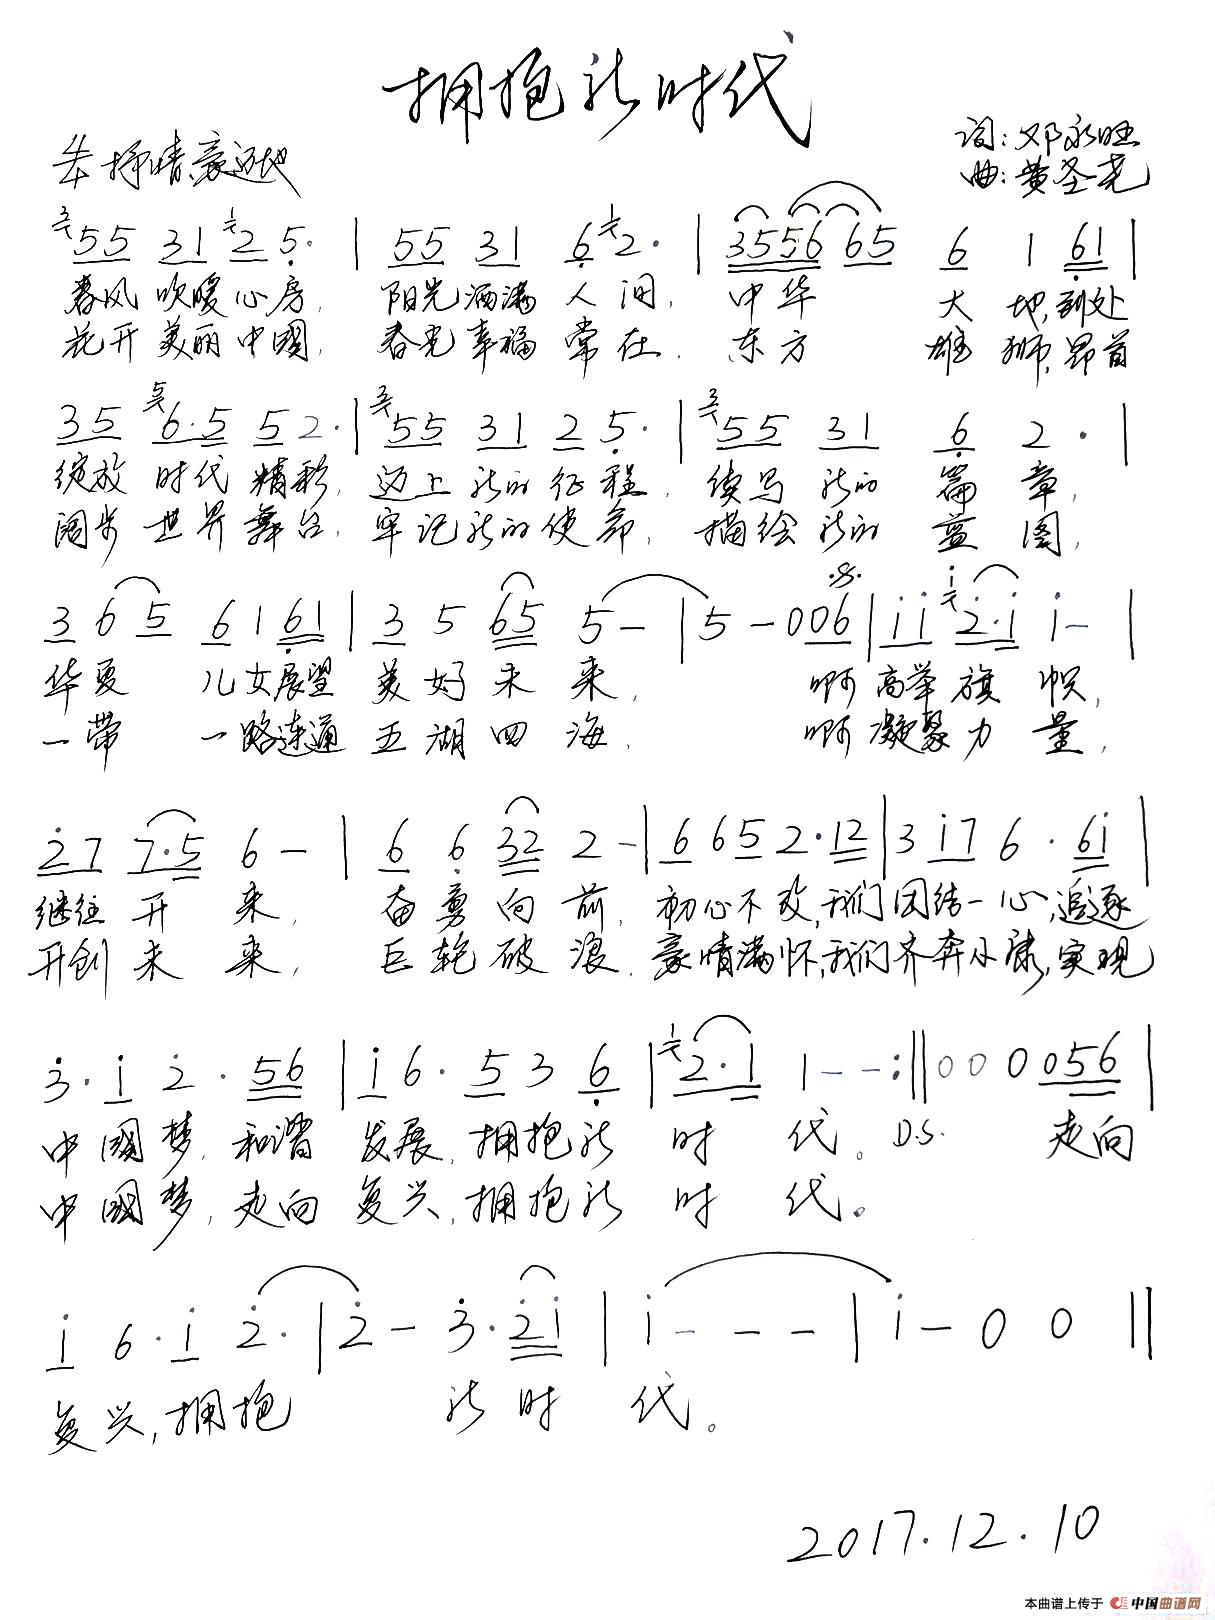 拥抱新时代
词:邓永旺
4/4 抒情、豪迈地
曲:黄圣尧
3 55 31 1 2 5· | 55 31 6 1 2· | 3556 65 6 1 61 |
春风吹暖心房, 阳光洒满人间, 中华大地,到处
花开美丽中國, 春光幸福常在, 东方雄狮,昂首
35 5 6·5 5 2· | 3 55 31 2 5· | 3 55 31 6 2· |
绽放时代精彩, 迈上新的征程, 续写新的篇章,
阔步世界舞台, 牢记新的使命, 描绘新的蓝图,
3 6 5 6 1 61 | 3 5 65 5 – | 5 – 0 06 | i i i 2·i i – |
华夏儿女展望美好未来, 啊高举旗帜,
一带一路连通五湖四海, 啊凝聚力量,
27 7·5 6 – | 6 6 32 2 – | 6 6 5 2·12 | 3 i7 6· 6i |
继往开来, 奋勇向前, 初心不改,我们团结一心,追逐
开创未来, 巨轮破浪, 豪情满怀,我们齐奔小康,实现
3·i 2· 56 | i 6·5 3 6 | 1 2·1 1 – – :|| 0 0 0 056 |
中國梦, 和谐发展, 拥抱新时代。 D.S. 走向
中國梦, 走向复兴, 拥抱新时代。
i 6·i 2· | 2 – 3·2i | i – – – | i – 0 0 ||
复兴, 拥抱新时代。
2017.12.10
本曲谱上传于 中国曲谱网